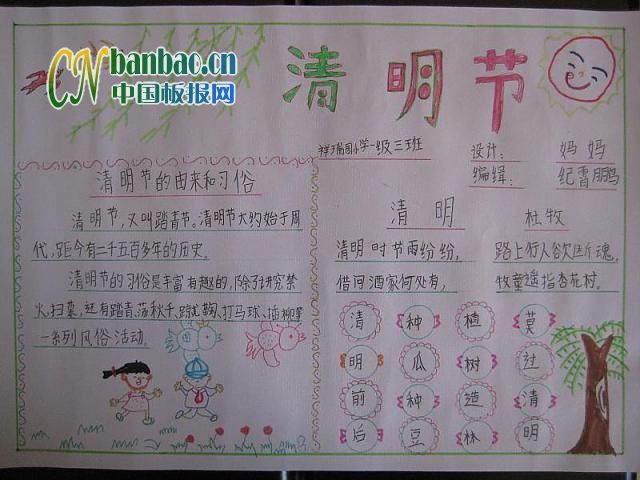 banbao.cn
中国板报网
清明节
小学一级三班
设计： 妈妈
编缉： 纪雷鹏
清明节的由来和习俗
清明节，又叫踏青节。清明节大约始于周
代，距今有二千五百多年的历史。
清明节的习俗是丰富有趣的，除了讲究禁
火、扫墓，还有踏青、荡秋千、蹴鞠、打马球、插柳等
一系列风俗活动。
清明 杜牧
清明时节雨纷纷， 路上行人欲断魂，
借问酒家何处有， 牧童遥指杏花村。
清 种 植 莫
明 瓜 树 过
前 种 造 清
后 豆 林 明